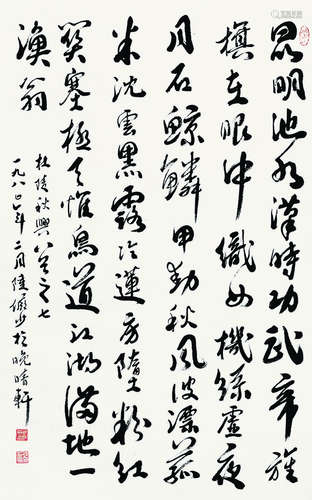 昆明池水漢時功武帝旌
旗在眼中織女機絲虛夜
月石鯨鱗甲動秋風波漂菰
米沈雲黑露冷蓮房墜粉紅
關塞極天惟鳥道江湖滿地一
漁翁
杜陵秋興八首之七
一九八年二月陸儼少於晚晴軒